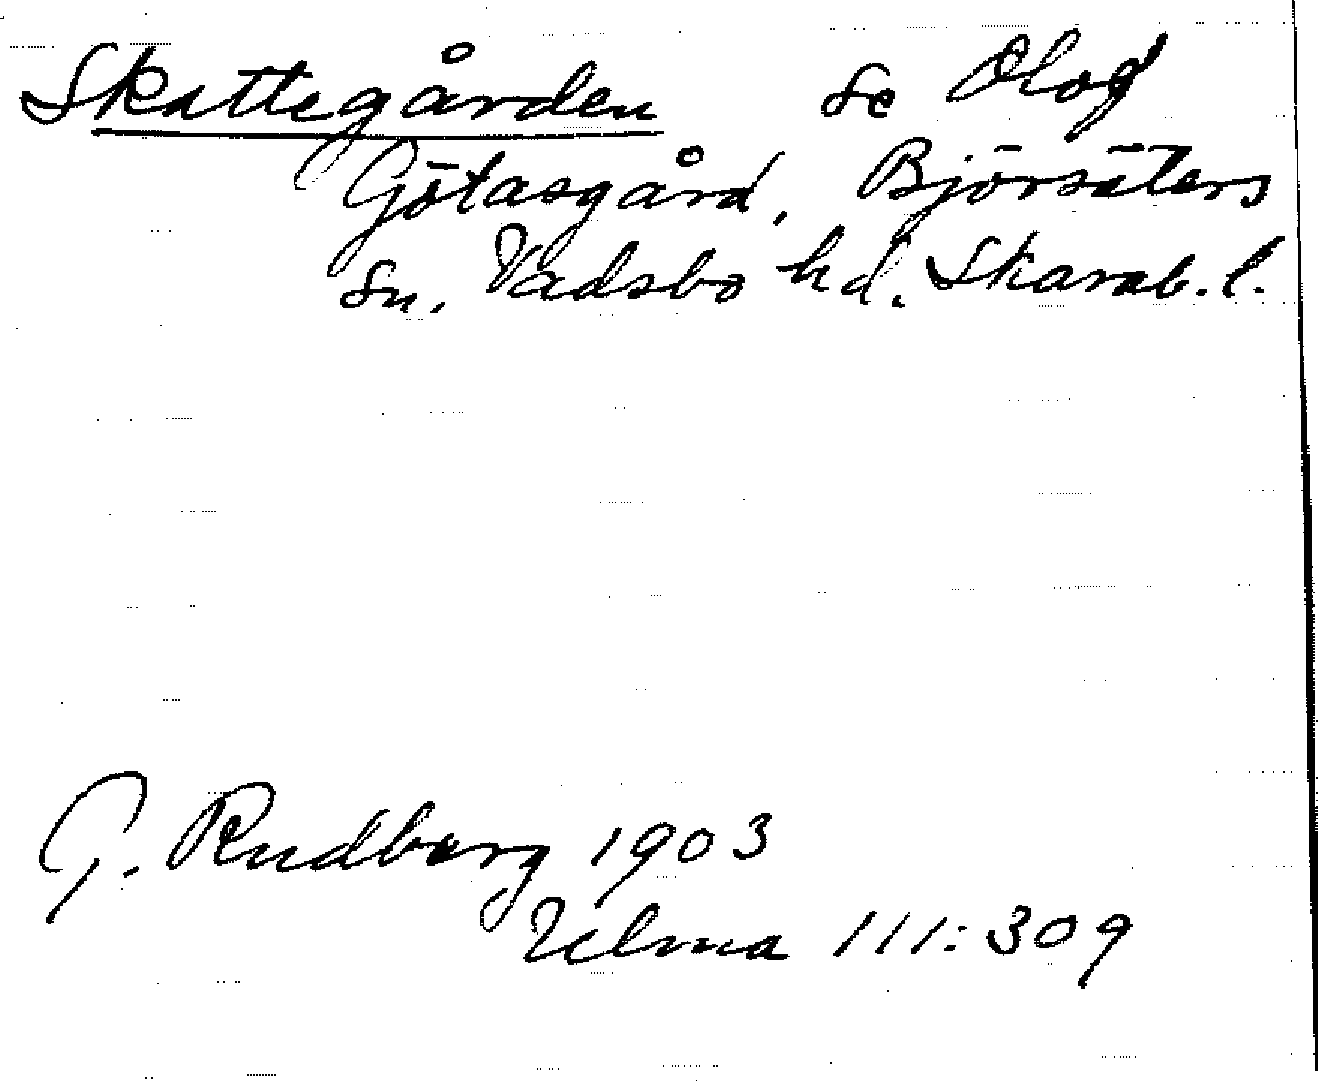 Skattegården se Olof
Götasgård, Björsäters
sn. Vadsbo hd. Skarab. l.
G. Rudberg 1903
Ulma 111:309